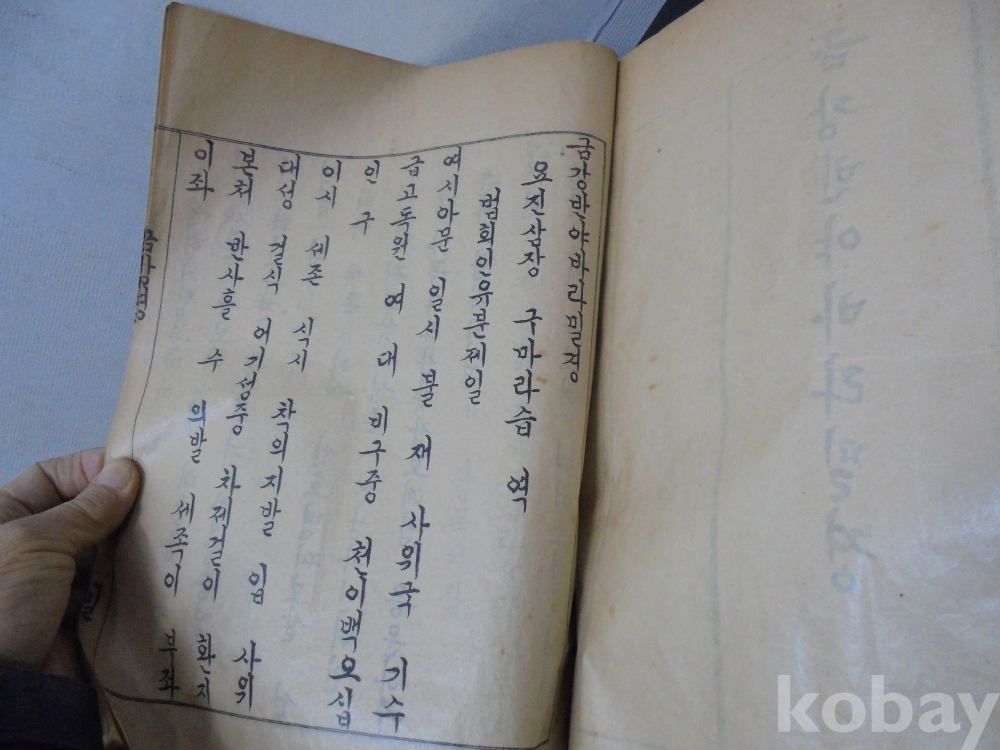 금강반야바라밀경
요진삼장 구마라습 역
법회인유분제일
여시아문 일시 불 재 사위국 기수
급고독원 여 대 비구중 천이백오십
인 구
이시 세존 식시 착의지발 입 사위
대성 걸식 어기성중 차제걸이 환지
본처 반사흘 수 의발 세족이 부좌
이좌
금강경
일
금강반야바라밀경
kobay